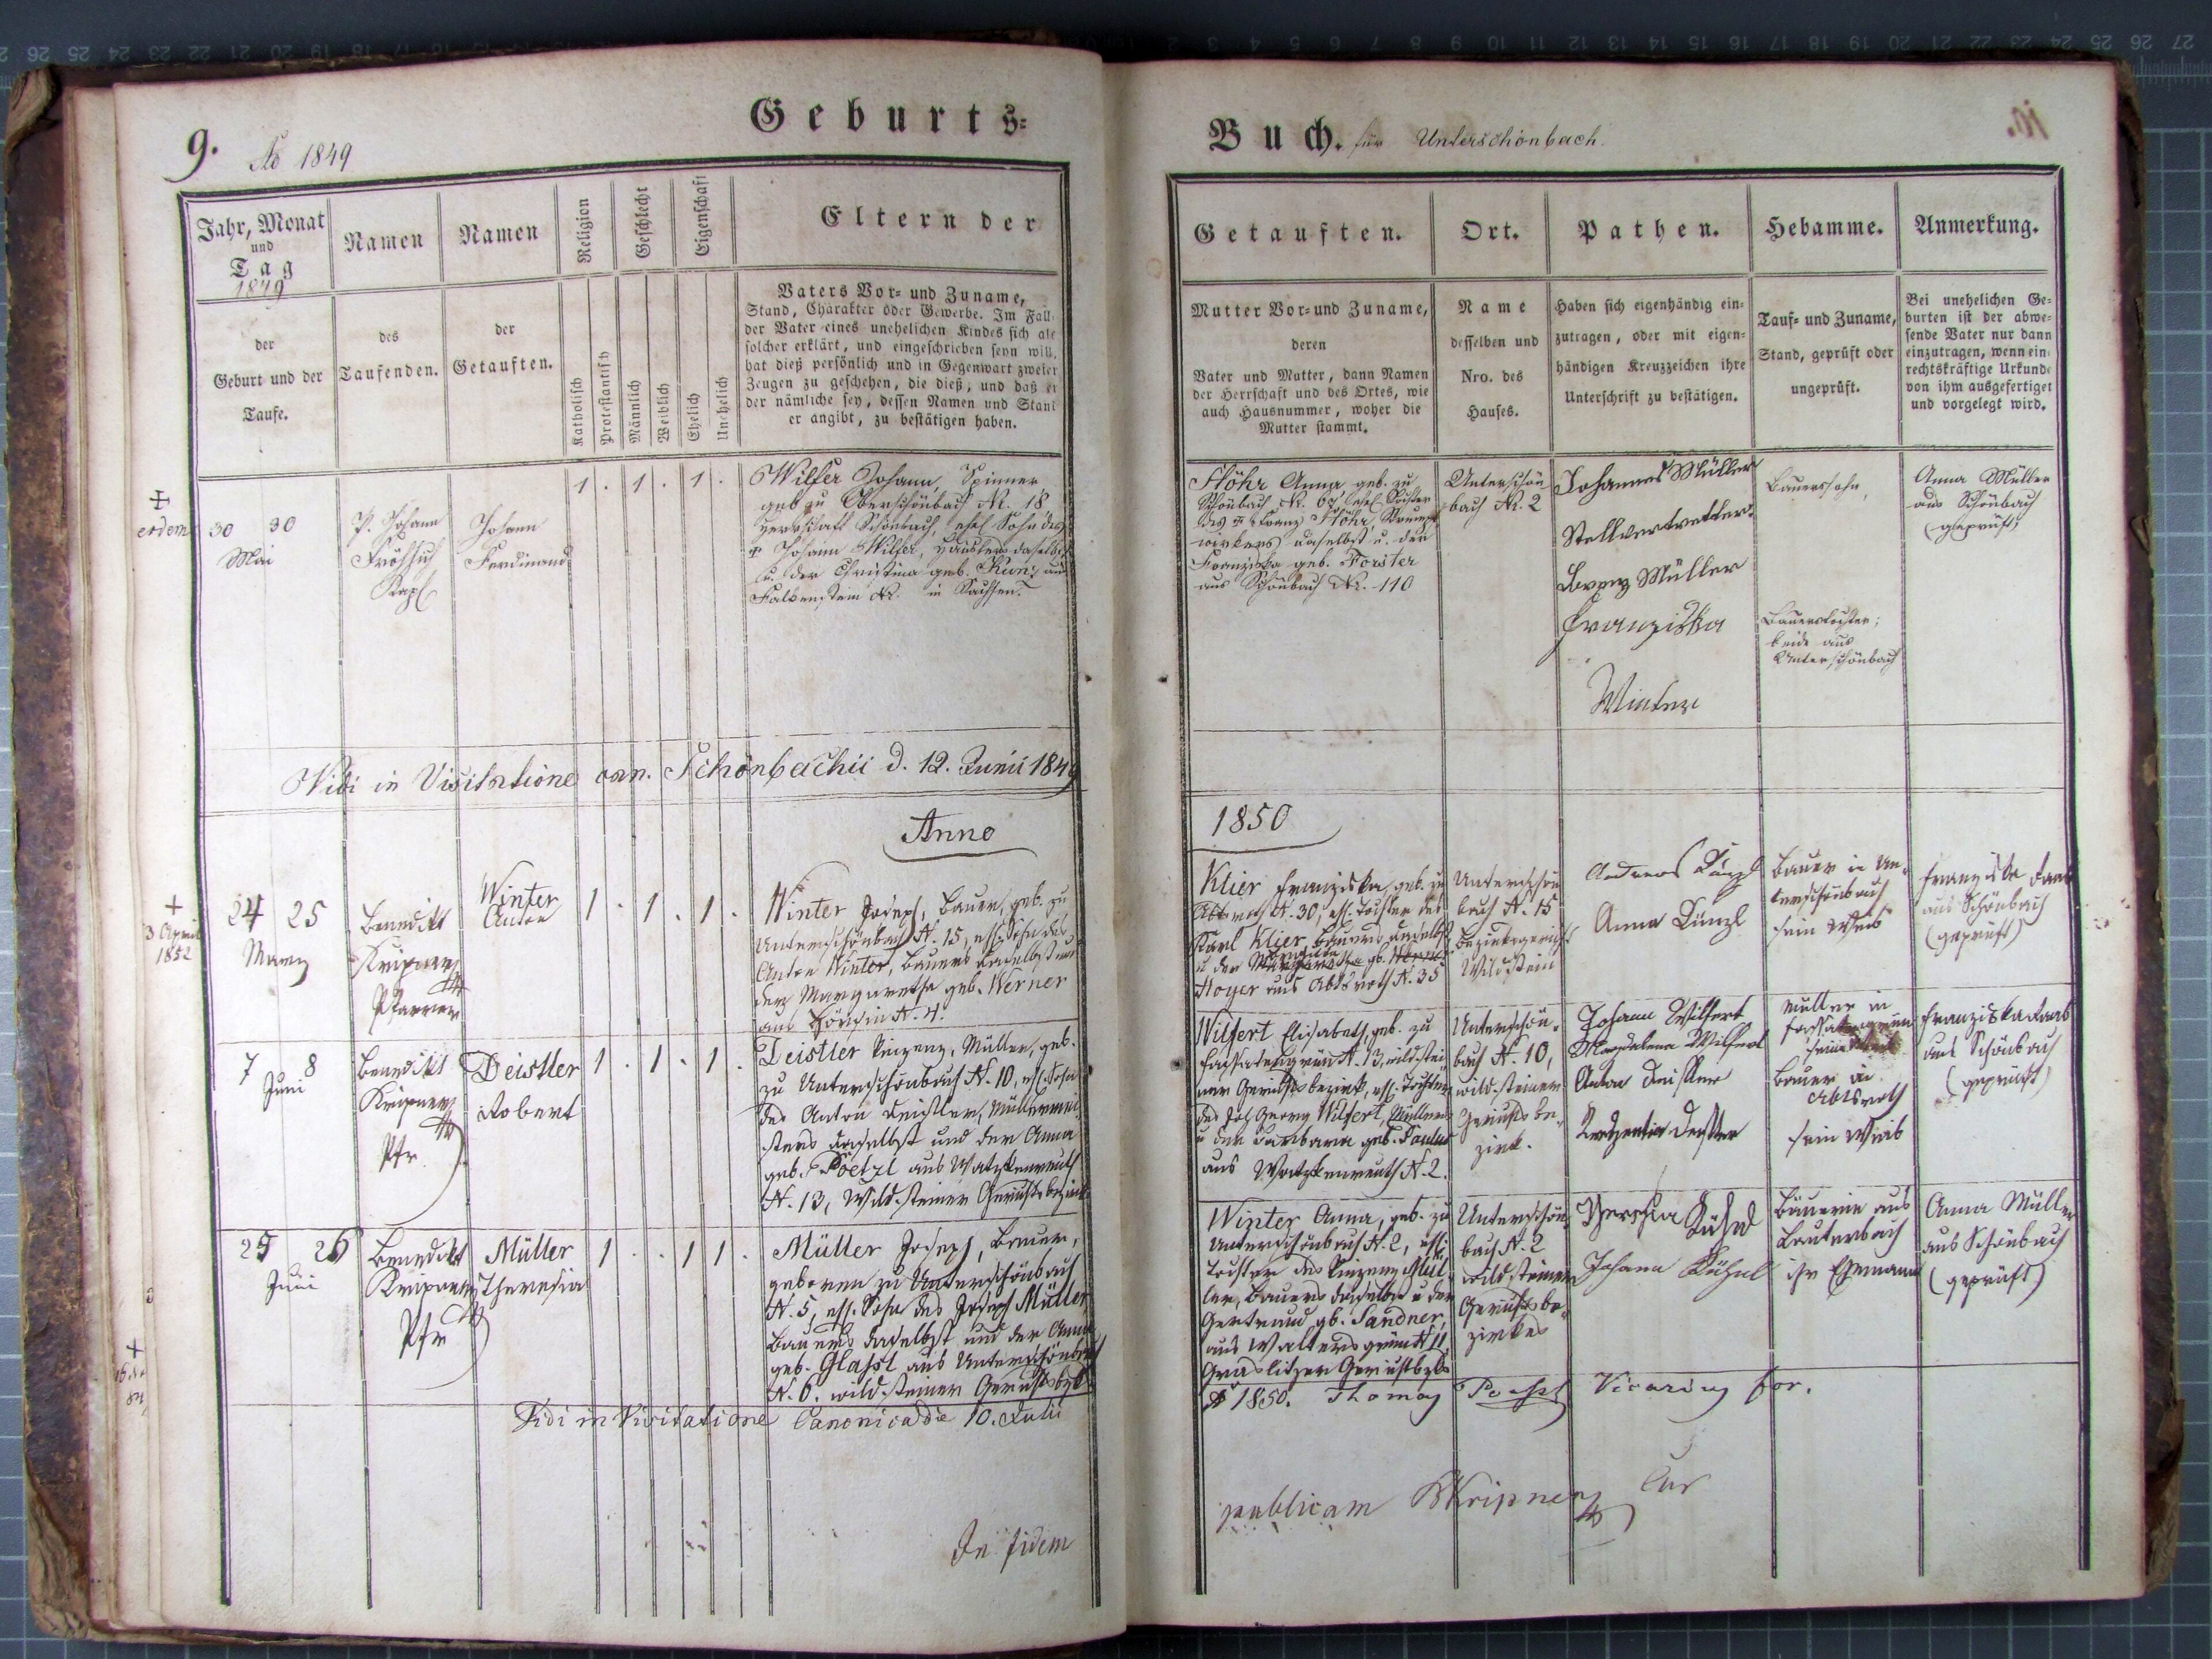 Geburts-
9. Ao 1849
Jahr, Monat und Tag 1849
der Geburt und der Taufe.
Namen
des Taufenden.
Namen
der Getauften.
Religion
Katholisch
Protestantisch
Geschlecht
Männlich
Weiblich
Eigenschaft
Ehelich
Unehelich
Eltern der
Vaters Vor- und Zuname,
Stand, Charakter oder Gewerbe. Im Fall
der Vater eines unehelichen Kindes sich als
solcher erklärt, und eingeschrieben seyn will,
hat dieß persönlich und in Gegenwart zweier
Zeugen zu geschehen, die dieß, und daß er
der nämliche sey, dessen Namen und Stand
er angibt, zu bestätigen haben.
† eodem
30 30
Mai
P. Johann
Kapl
Johann
Ferdinand
1 . 1 . 1 .
Wilfer Johann, Spinner
geb. zu Oberschönbach N. 18
Herrschaft Schönbach, ehel. Sohn des
† Johann Wilfer, Häuslers daselbst
u. der Christina geb. Kunz aus
Falkenstein N. in Sachsen.
Vidi in Visitatione can. Schönbachii d. 12. Junii 1849
Anno
†
3 April
1852
24 25
März
Benedikt
Kripner
Pfarrer
Winter
Anton
1 . 1 . 1 .
Winter Joseph, Bauer, geb. zu
Unterschönbach N. 15, ehl. Sohn des
Anton Winter, Bauers daselbst und
der Margaretha geb. Werner
aus N. 4.
7 8
Juni
Benedikt
Kripner
Pfr
Deistler
Robert
1 . 1 . 1 .
Deistler Vinzenz, Müller, geb.
zu Unterschönbach N. 10, ehl. Sohn
des Anton Deistler, Müllermei-
sters daselbst und der Anna
geb. Poetzl aus Watzkenreuth
N. 13, Wildsteiner Gerichtsbezirk
25 26
Juni
Benedikt
Kripner
Pfr
Müller
Theresia
1 . . 1 1 .
Müller Joseph, Bauer,
geboren zu Unterschönbach
N. 5, ehl. Sohn des Joseph Müller
Bauers daselbst und der Anna
geb. Glassl aus Unterschönbach
N. 6. wildsteiner Gerichtsbzk
Vidi in Visitatione Canonica die 10. Julii
In fidem
Buch. für Unterschönbach.
10.
Getauften.
Mutter Vor- und Zuname,
deren
Vater und Mutter, dann Namen
der Herrschaft und des Ortes, wie
auch Hausnummer, woher die
Mutter stammt.
Ort.
Name
desselben und
Nro. des
Hauses.
Pathen.
Haben sich eigenhändig ein-
zutragen, oder mit eigen-
händigen Kreuzzeichen ihre
Unterschrift zu bestätigen.
Hebamme.
Tauf- und Zuname,
Stand, geprüft oder
ungeprüft.
Anmerkung.
Bei unehelichen Ge-
burten ist der abwe-
sende Vater nur dann
einzutragen, wenn ein
rechtskräftige Urkunde
von ihm ausgefertiget
und vorgelegt wird.
Stöhr Anna geb. zu
Schönbach N. ehel. Tochter
des † Franz Stöhr,
daselbst u. der
Franziska geb. Forster
aus Schönbach N. 110
Unterschön
bach N. 2
Johannes Müller
Stellvertretter
Lorenz Müller
Franziska
Winter
Bauerssohn,
Bauerstochter;
beide aus
Unterschönbach
Anna Müller
aus Schönbach
(geprüft)
1850
Klier Franziska, geb. zu
Abtsroth N. 30, ehl. Tochter des
Karl Klier, Bauers daselbst
u der gb.
Hoyer aus Abtsroth N. 35
Unterschön
bach N. 15
Bezirksgericht
Wildstein
Andreas Künzl
Anna Künzl
Bauer in Un-
terschönbach
sein Weib
Franziska Raab
aus Schönbach
(geprüft)
Wilfert Elisabeth, geb. zu
N. 13, wildstei-
ner Gerichtsbezirk, ehl. Tochter
des Joh Georg Wilfert, Müllers
u der Barbara geb. Paulus
aus Watzkenreuth N. 2.
Unterschön-
bach N. 10,
wildsteiner
Gerichtsbe-
zirk.
Johann Wilfert
Magdalena Wilfert
Anton Deistler
Deistler
Müller in
sein Weib
Bauer in
Abtsroth
sein Weib
Franziska Raab
aus Schönbach
(geprüft)
Winter Anna, geb. zu
Unterschönbach N. 2, ehl.
Tochter des Vinzenz Mül-
ler, Bauers daselbst u der
Gertraud gb. Sandner,
aus Waltersgrün N 11
Graslitzer Gerichtbzks
Unterschön
bach N. 2
wildsteiner
Gerichtsbe-
zirkes
Theresia Kühnl
Johann Kühnl
Bäuerin aus
Lauterbach
ihr Ehemann
Anna Müller
aus Schönbach
(geprüft)
1850. Thomas Poetzl Vicarius for.
publicam BKripner Cur